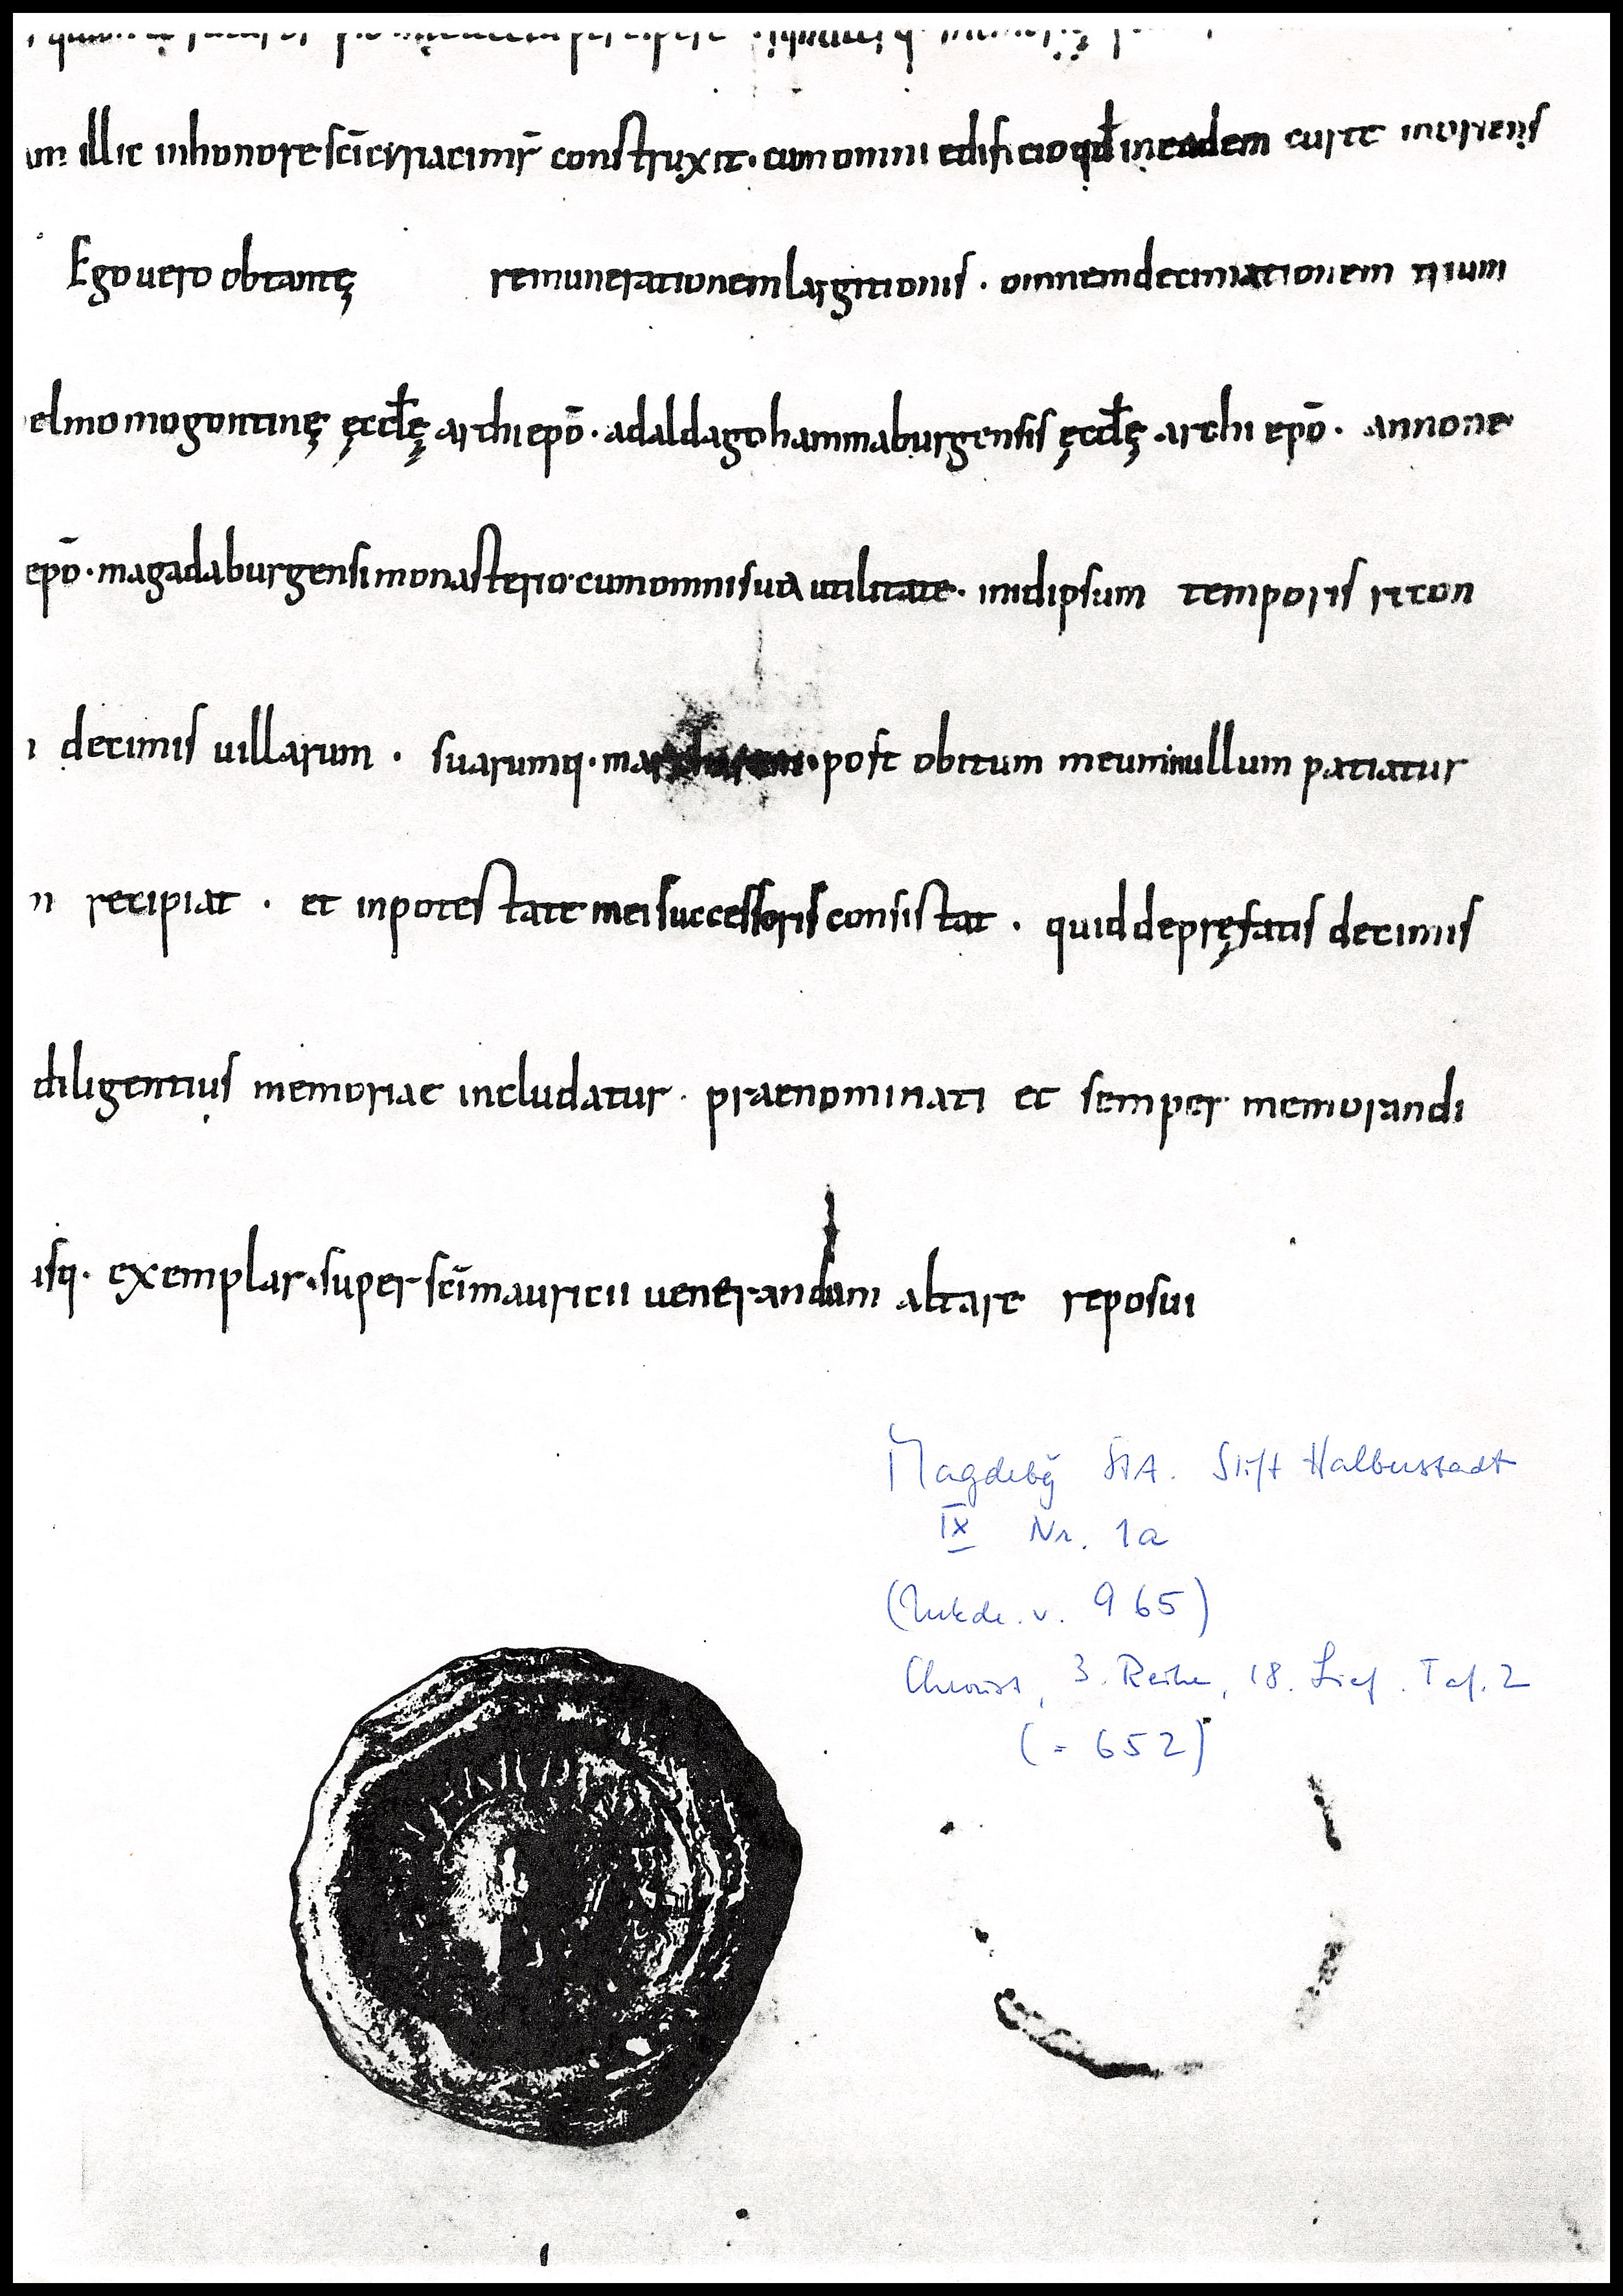 illic inhonore sc̄i cyriaci mr̄ construxit · cum omni edificio qđ in eadem curte moriens
Ego uero obtantę remunerationem largitionis · omnem decimationem trium
elmo mogontinę ęccłę archi epō · adaldago hammaburgensis ęccłę archi epō · annone
epō · magadaburgensi monasterio · cum omni sua utilitate · in idipsum temporis riton
decimis uillarum · suarumq · post obitum meum nullum patiatur
n recipiat · et in potestate mei successoris consistat · quid de pręfatis decimis
diligentius memoriae includatur · praenominati et semper memorandi
isq · exemplar · super sc̄i mauricii uenerandum altare reposui
Magdebg StA. Stift Halberstadt
IX Nr. 1a
(Urkde. v. 965)
Chroust, 3. Reihe, 18. Lief. Taf. 2
(= 652)